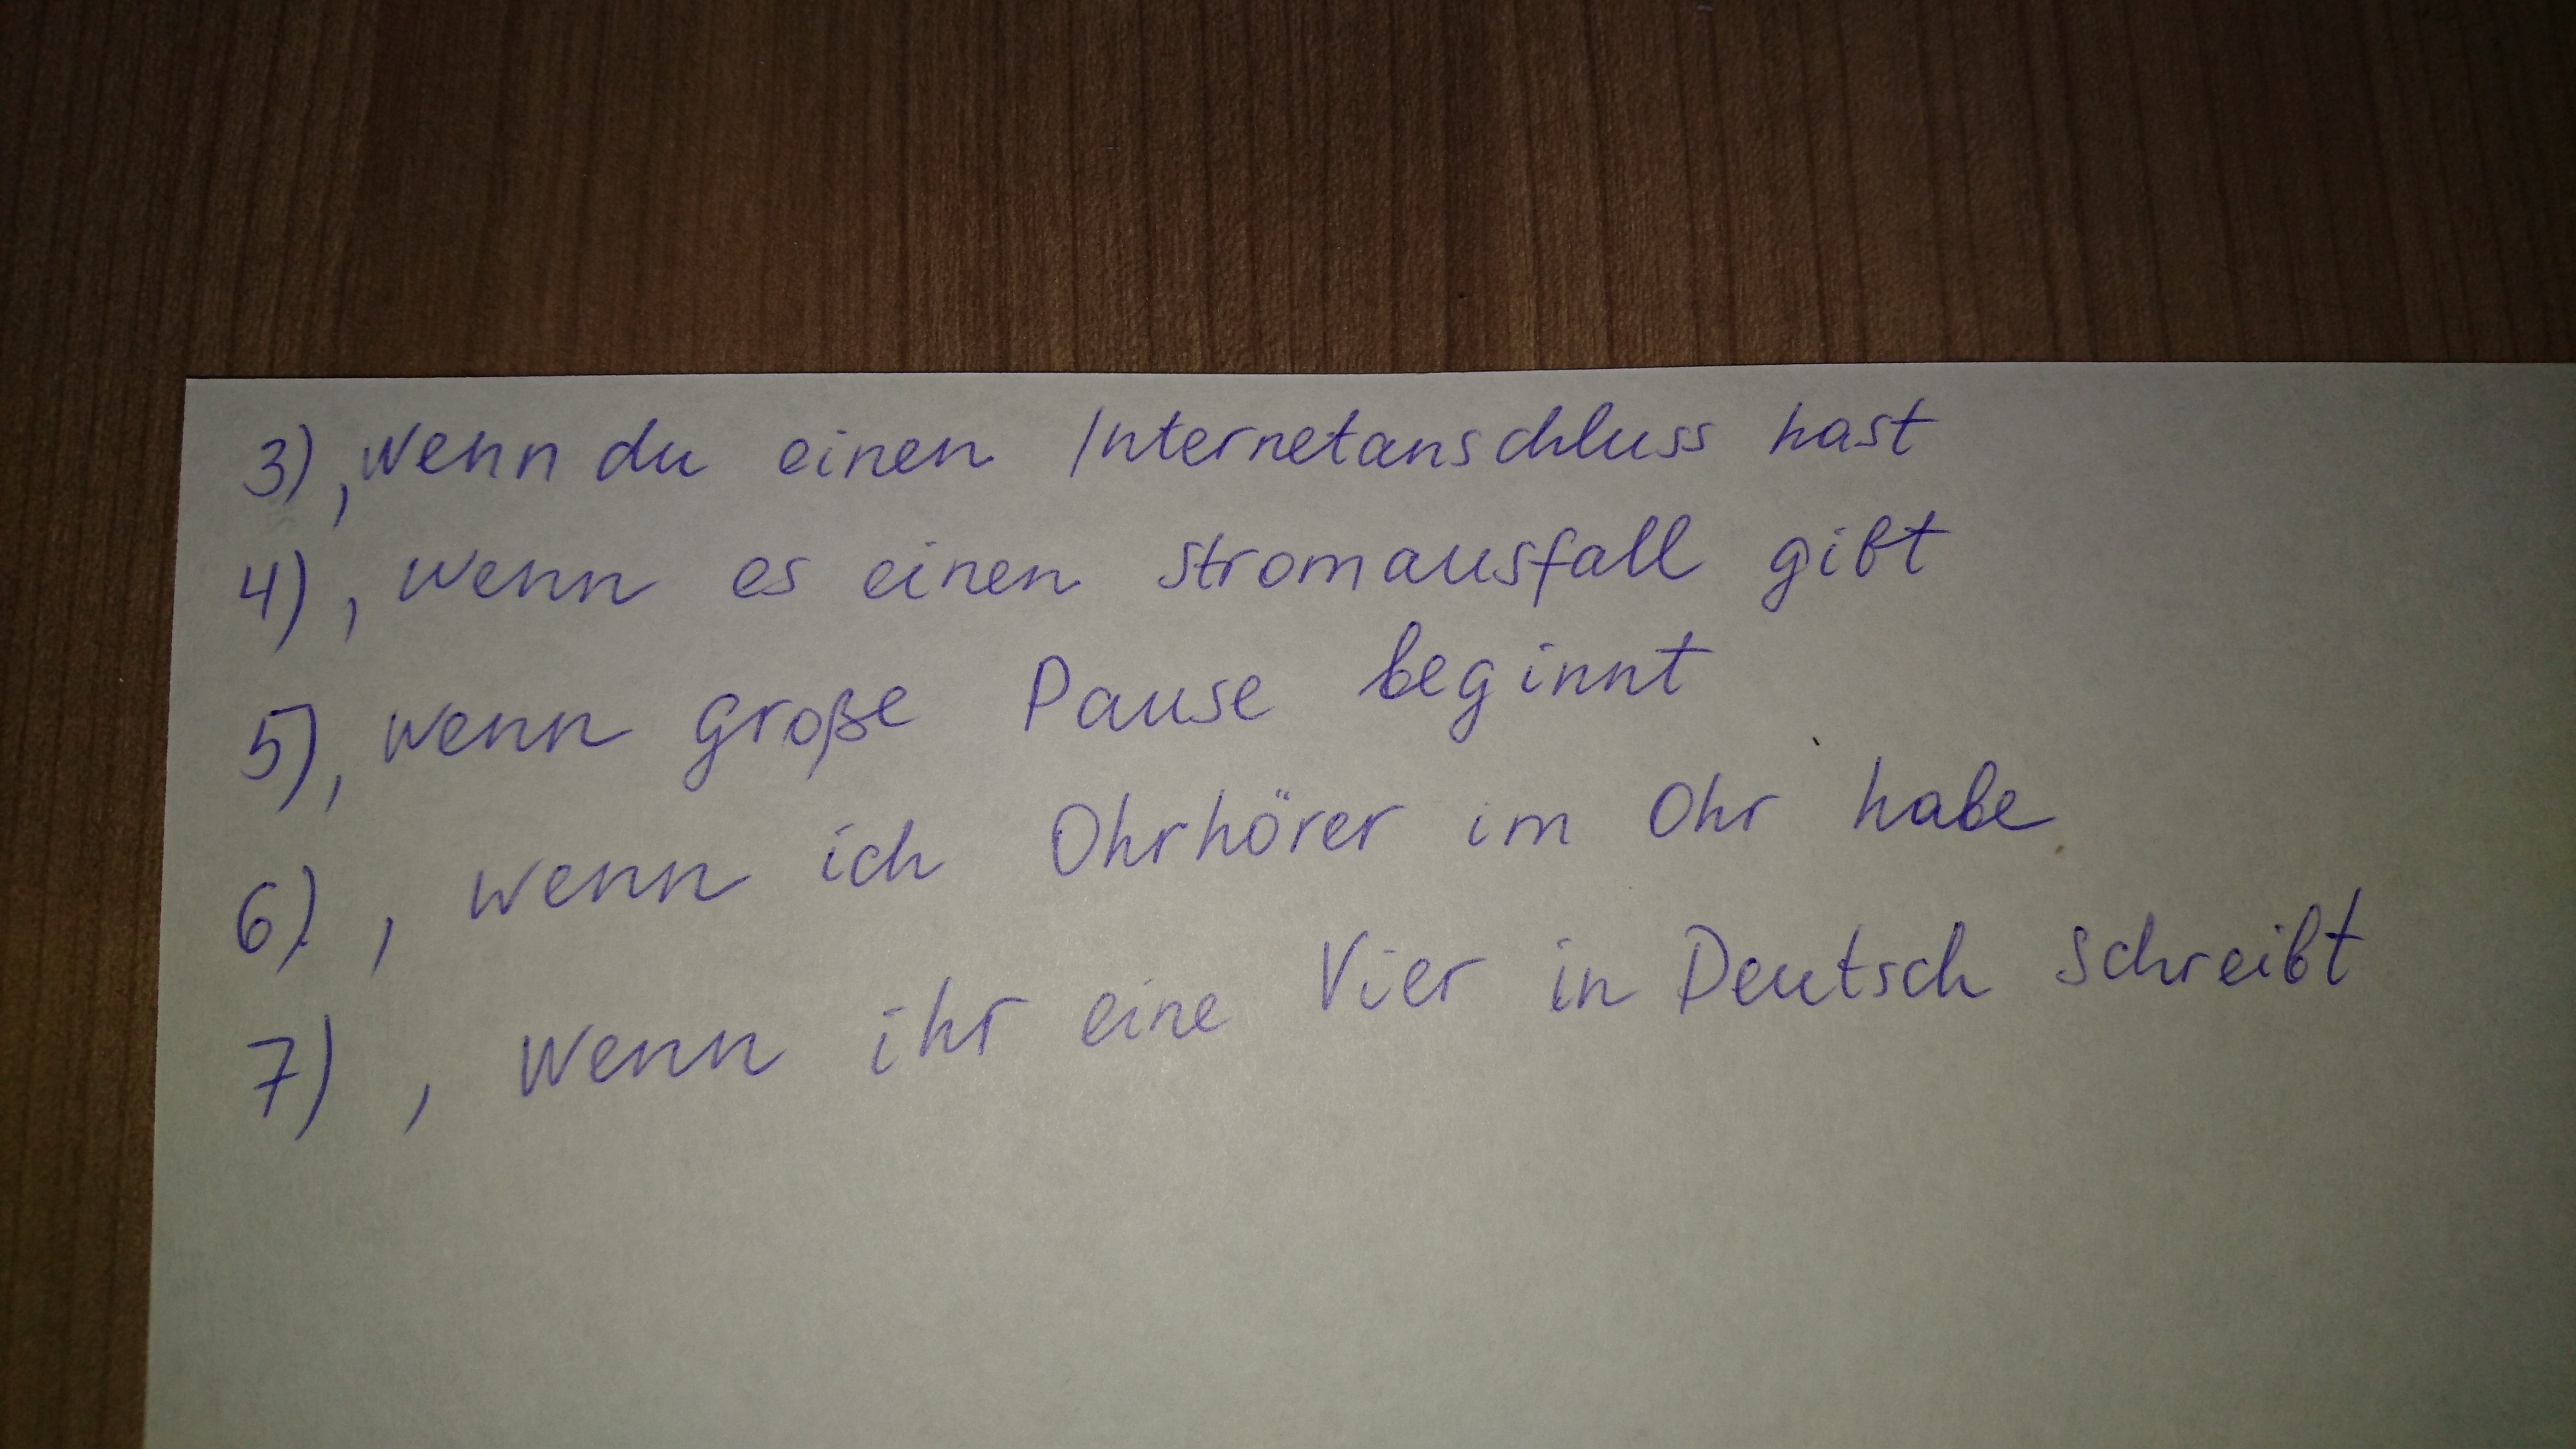 3), wenn du einen Internetanschluss hast
4), wenn es einen Stromausfall gibt
5), wenn große Pause beginnt
6), wenn ich Ohrhörer im Ohr habe
7), wenn ihr eine Vier in Deutsch schreibt